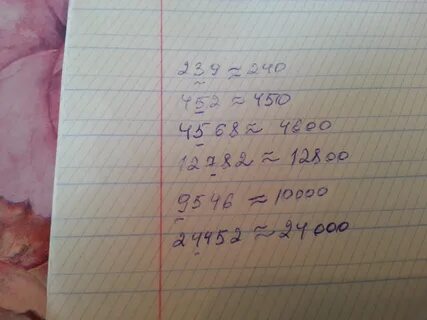 239 ≈ 240
452 ≈ 450
4568 ≈ 4600
12782 ≈ 12800
9546 ≈ 10000
24452 ≈ 24000